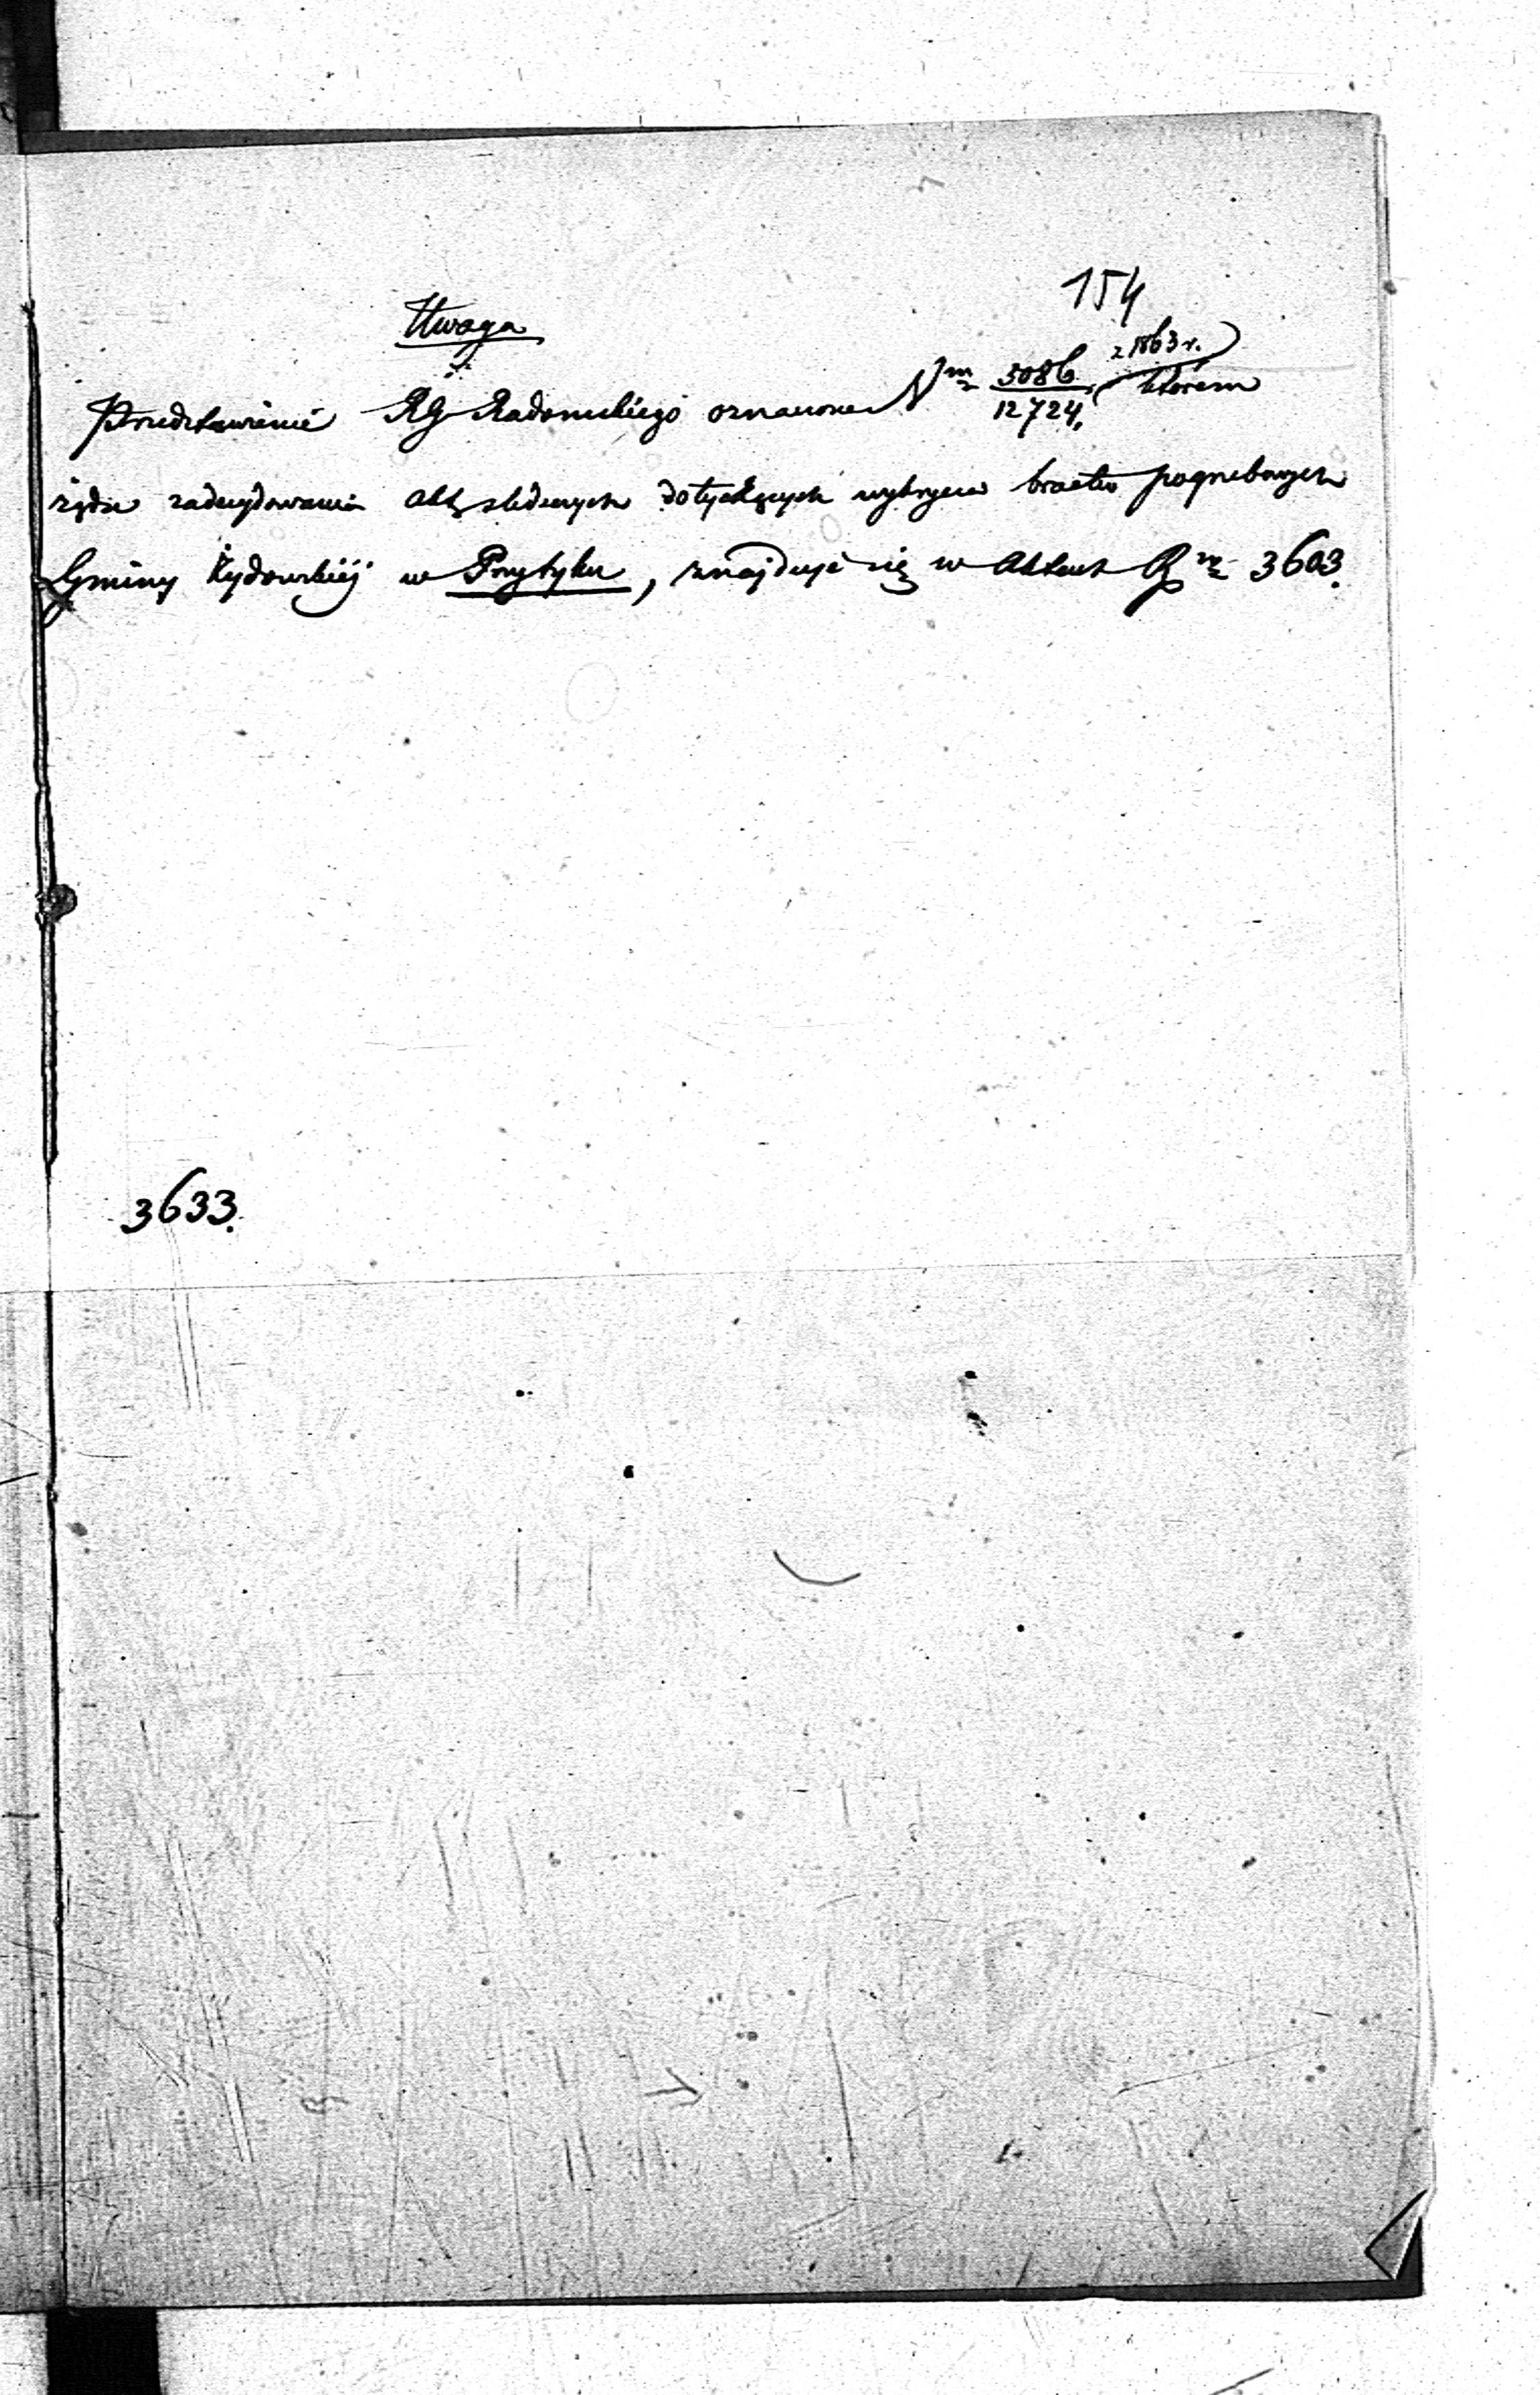 154
Uwaga
Przedstawienie RG Radomskiego oznaczone Nm 5086/12724. z 1863 r. którém
żąda zadecydowania akt śledczych dotyczących wykrycia bractw pogrzebowych
Gminy Żydowskiéj w Przytyku, znajduje się w Aktach R 3603.
3633.